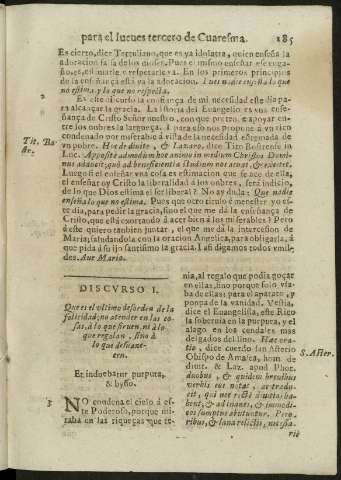 para el Iueues tercero de Cuaresma. 185
Es cierto, dize Tertuliano, que es ya idolatra, quien enseña la
adoracion falsa de los dioses. Pues el mismo enseñar
es, estimarle, o respetarle. En los primeros principios
de la enseñança está ya la adoracion.
no estima, y lo que no respeta.
2
Es este discurso la confiança de mi necesidad este dia pa-
ra alcançar la gracia. La storia del Euangelio es vna ense-
ñança de Cristo Señor nuestro, con que pretende apoyar en-
tre los nobres la largueza. I para esso nos propone a vn rico
condenado por miserable á vista de la necesidad afligada de
vn pobre. Hoc de diuite, & Lazaro, dize Tito Bostrense in
Tit. Bo-
str.
Luc. Apposite admodum hoc animo in medium Christus Domi-
nus adducit, quò ad beneficentiæ studium nos acuat, & excitet.
Luego si el enseñar vna cosa es estimacion que se aze de ella,
el enseñar oy Cristo la liberalidad á los onbres, será indicio,
de lo que Dios estima el ser liberal? No ay duda: Que nadie
enseña lo que no estima. Pues que otro titulo é menester yo es-
te dia, para pedir la gracia, sino el que me dá la enseñança de
Cristo, que está exortando á azer bien á los miserables? Pero
á este quiero tanbien juntar, el que me dá la intercession de
Maria, saludandola con la oracion Angelica, para obligarla, á
que pida á su ijo santissimo la gracia. I assi digamos todos vmil-
des. Aue Maria.
DISCVRSO I.
Que es el vltimo desorden de la
felicidad, no atender en las co-
sas, á lo que siruen, ni á lo
que regalan, sino á
lo que desuane-
cen.
Et induebatur purpura,
& bysso.
3
NO condena el cielo á es-
te Poderoso, porque mi-
raba en las riquezas que te-
nia, al regalo que podia goçar
en ellas, sino porque solo vsa-
ba de ellas para el aparato, y
ponpa de la vanidad. Vestia,
dice el Euangelista, este Rico
la soberuia en la purpura, y el
alago en los cendales mas
delgados del lino. Hac ora-
tio, dice cuerdo san Asterio
S. Aster.
Obispo de Amasea, hom. de
diuit. & Laz. apud Phot.
duobus, & quidem breuibus
verbis eos notat, ac tradu-
cit, qui nec recte diuitijs ha-
bent, & ad inanes, & immodi-
cos sumptus abutuntur. Pero-
ribus, & lana relictis, necessa-
rijs